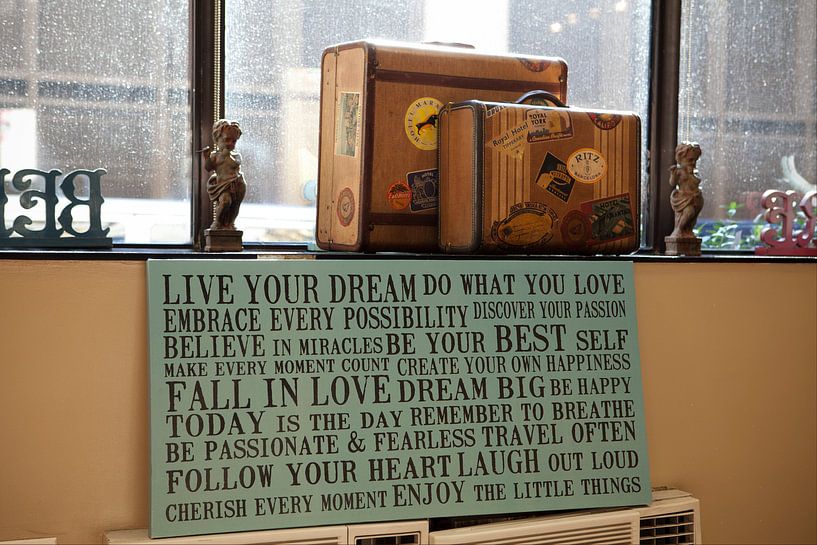 BE
HOTEL MARA
Royal Hotel
ROYAL YORK
RITZ
BARCELONA
LIVE YOUR DREAM DO WHAT YOU LOVE
EMBRACE EVERY POSSIBILITY DISCOVER YOUR PASSION
BELIEVE IN MIRACLES BE YOUR BEST SELF
MAKE EVERY MOMENT COUNT CREATE YOUR OWN HAPPINESS
FALL IN LOVE DREAM BIG BE HAPPY
TODAY IS THE DAY REMEMBER TO BREATHE
BE PASSIONATE & FEARLESS TRAVEL OFTEN
FOLLOW YOUR HEART LAUGH OUT LOUD
CHERISH EVERY MOMENT ENJOY THE LITTLE THINGS